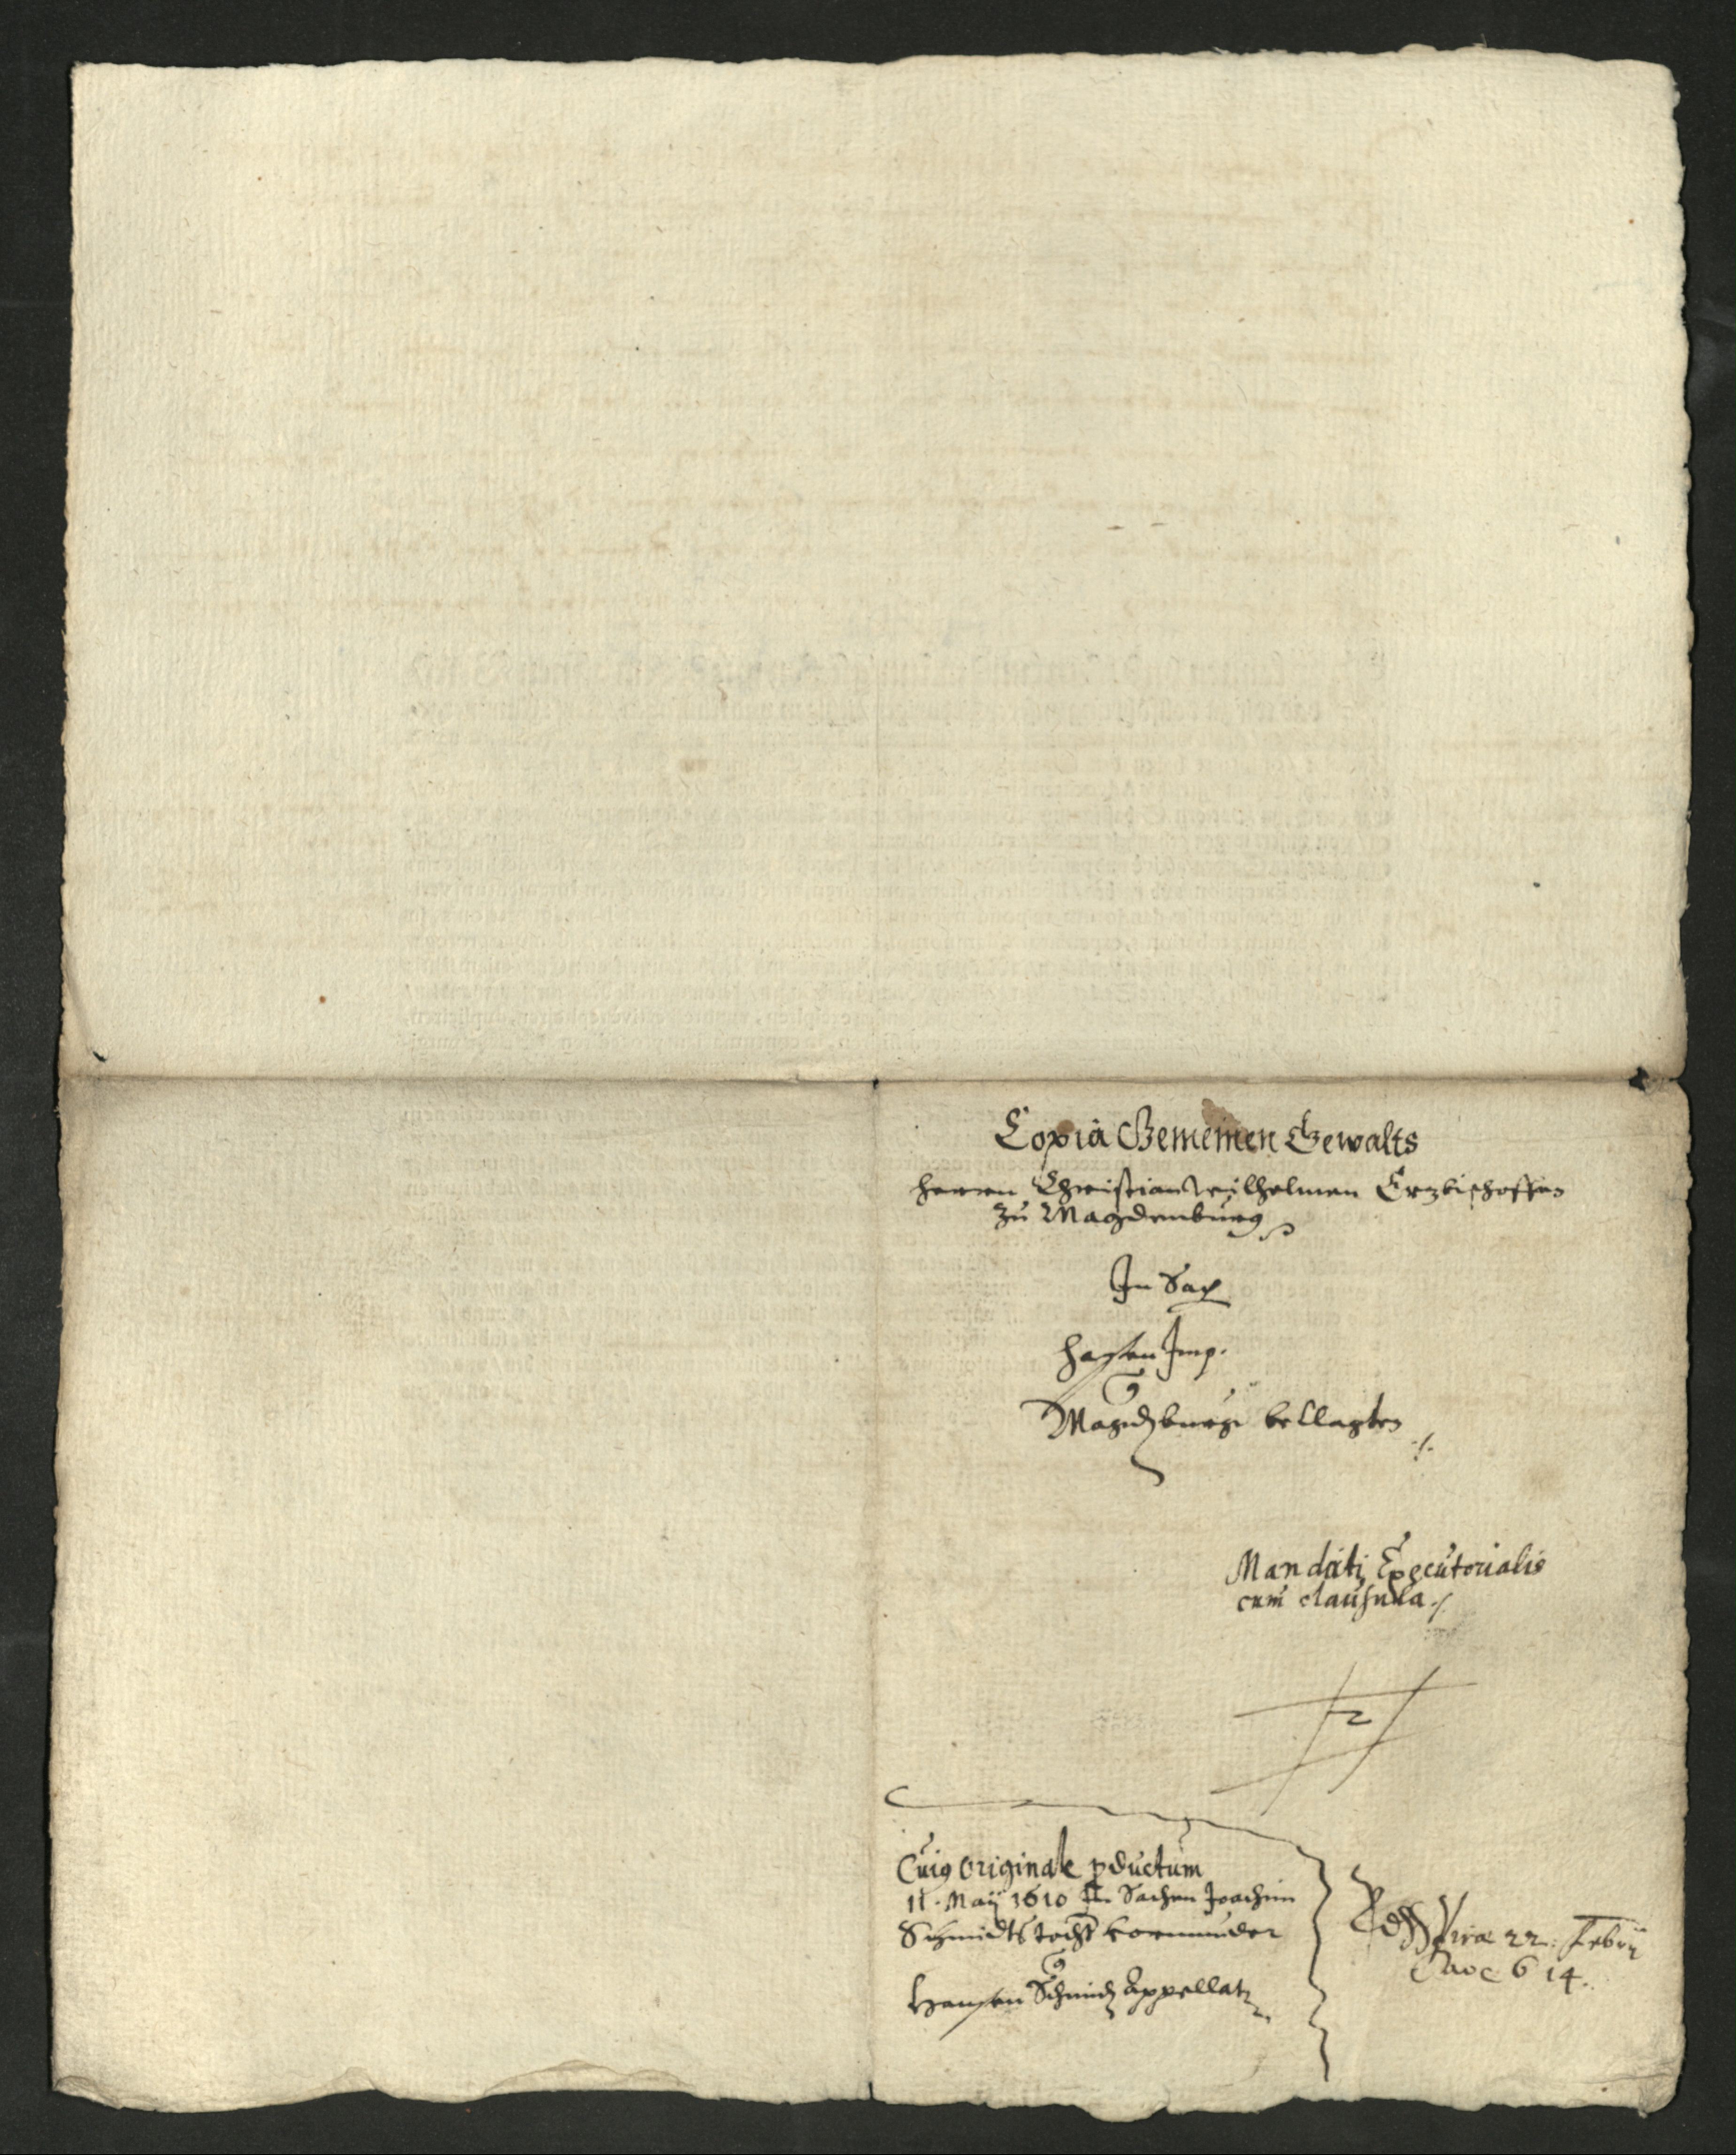 Copia Gemeinen Gewalts
herren Christian Wilhelmen Erzbischoffen
zu Magdenburg
In Sach
Hasen Imp.
Magdburg beklagten
Mandati Executorialis
cum clausula
2
Cuius originale productum
11. Maij 1610 In Sachen Joachim
Schmidts Vormunder
Hansen Schmidt Appellat
Spiræ 22. Febr
Anno 614.